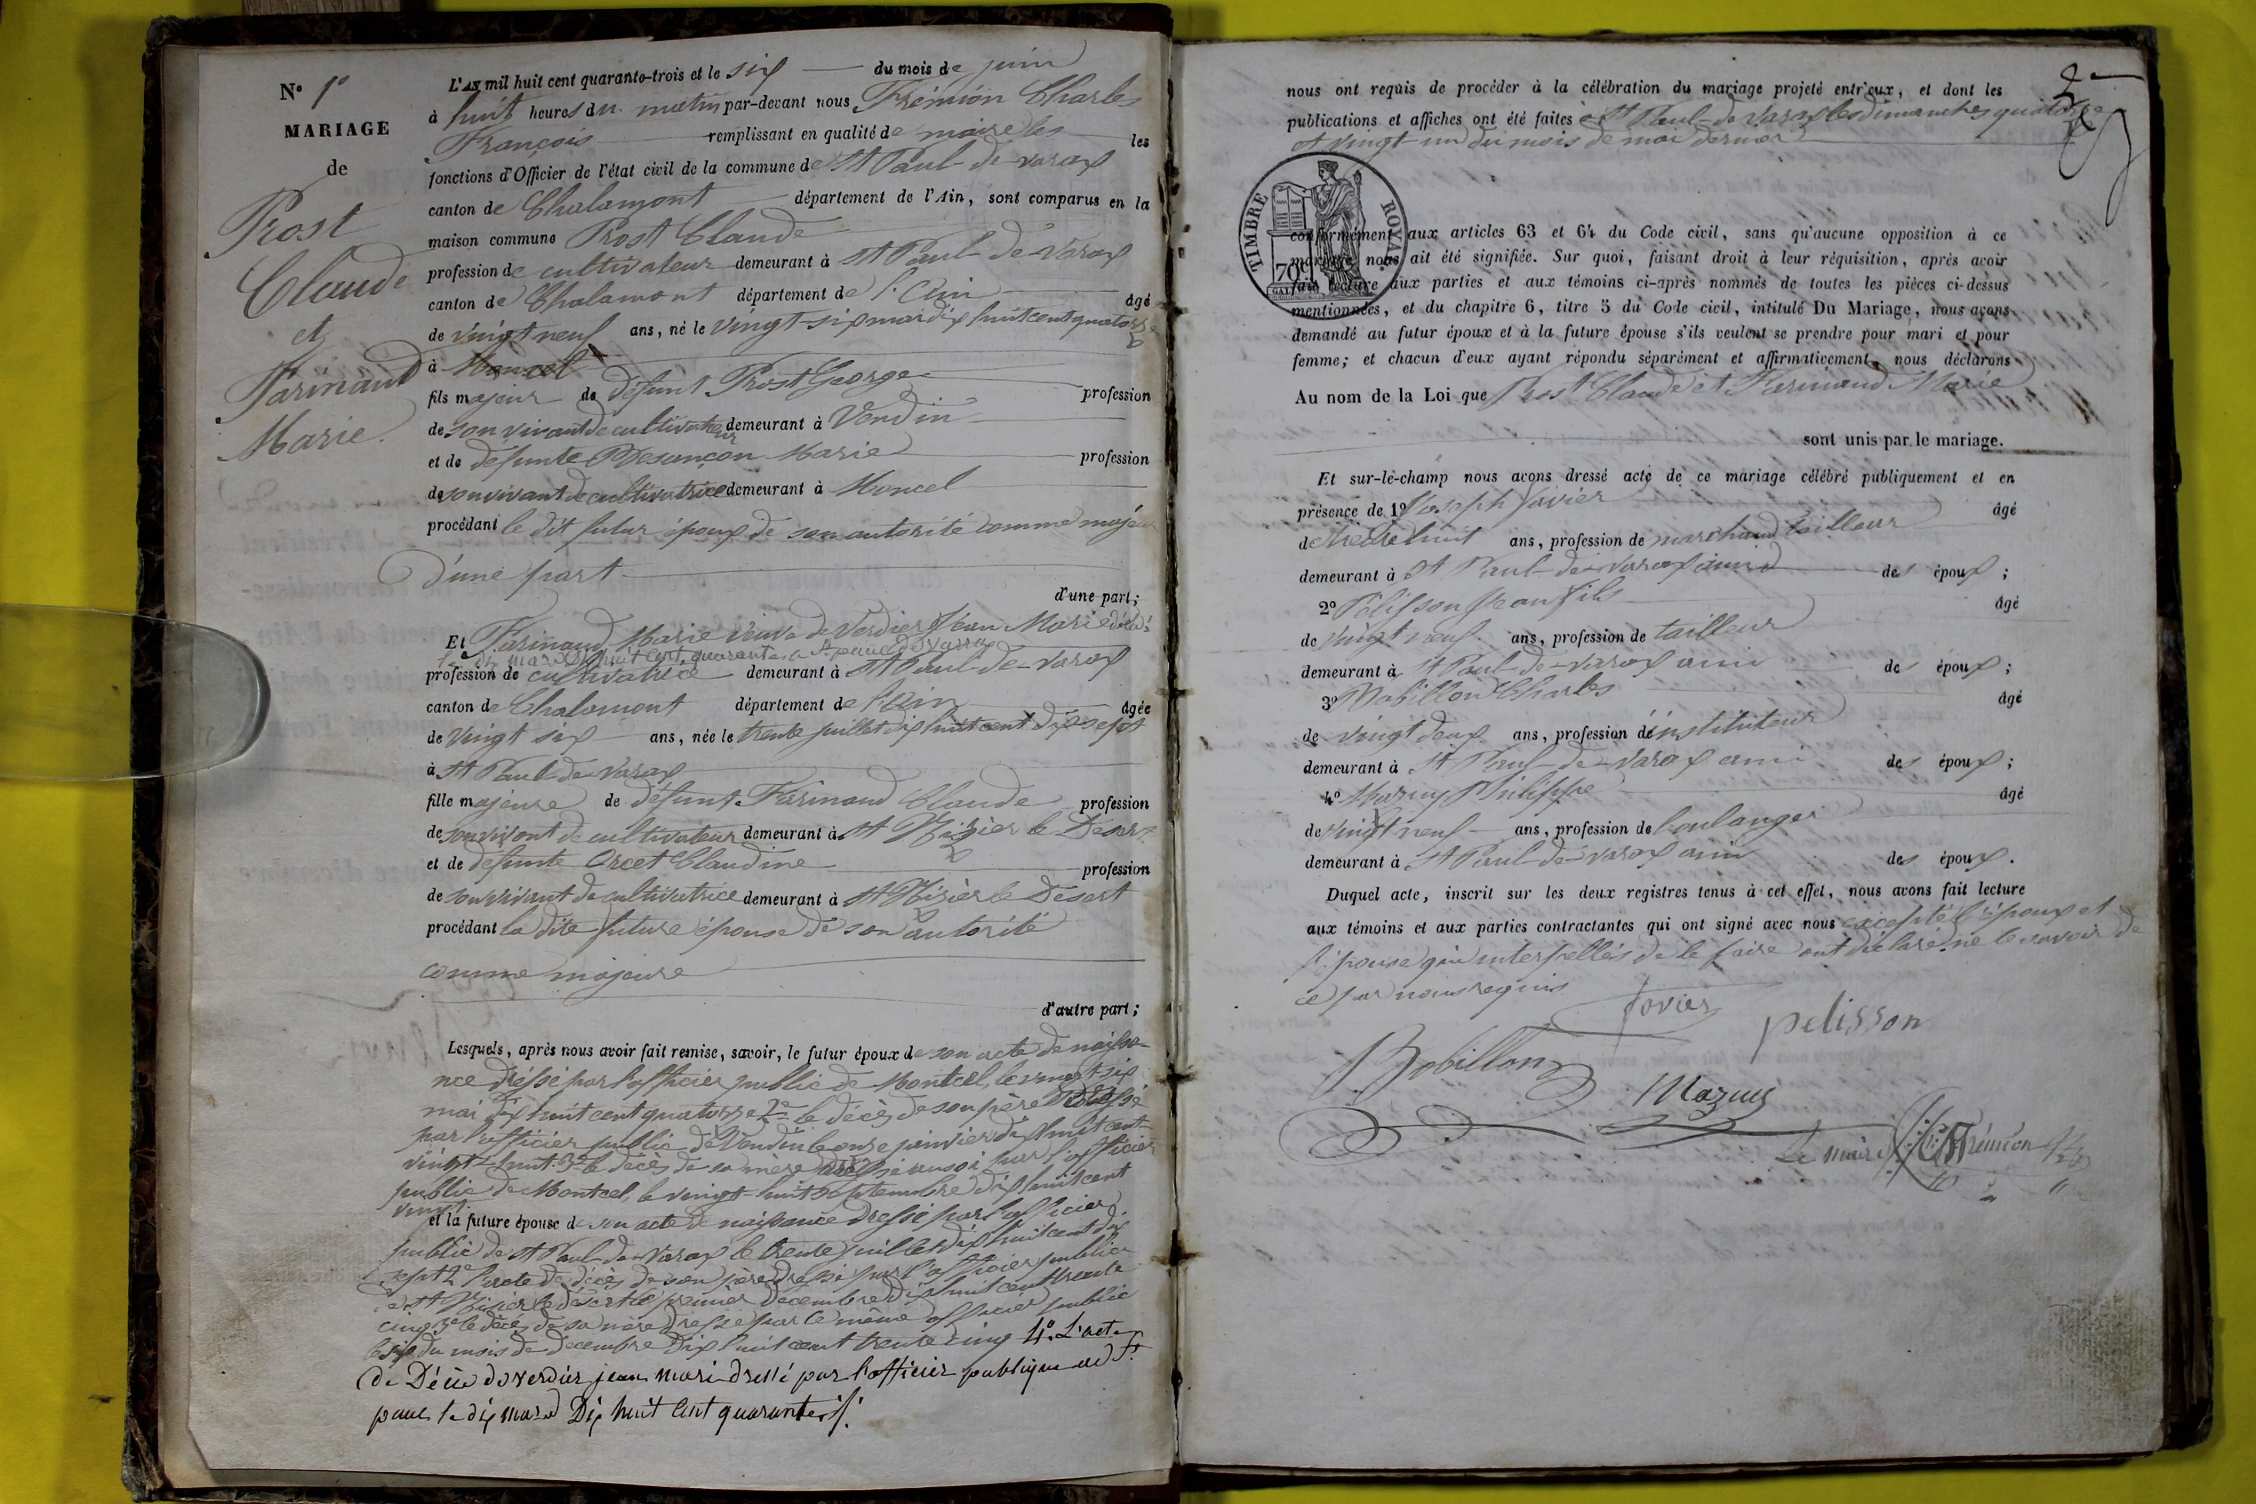 N° 1°
MARIAGE
de
Prost
Claude
et
Farinaud
Marie.
L'AN mil huit cent quarante-trois et le six du mois de juin
à huit heures du matin par-devant nous Frémion Charles
François remplissant en qualité de maire les les
fonctions d'Officier de l'état civil de la commune de St Paul-de-varax
canton de Chalamont département de l'Ain, sont comparus en la
maison commune Prost Claude
profession de cultivateur demeurant à St Paul-de-Varax
canton de Chalamont département de l'Ain âgé
de vingt neuf ans, né le vingt-six mai dix huit cent quatorze
à Moncel
fils majeur de défunt Prost George profession
de son vivant de cultivateur demeurant à Vendin
et de défunte Besançon Marie profession
de son vivant de cultivatrice demeurant à Moncel
procédant le dit futur époux de son autorité comme majeur
d'une part
d'une part;
Et Farinaud Marie veuve de Verdier Jean Marie décédé
le dix mars dix huit cent quarante à St paul de varax
profession de cultivatrice demeurant à St Paul-de-Varax
canton de Chalamont département de l'Ain âgée
de vingt six ans, née le trente juillet dix huit cent dix sept
à St Paul-de-Varax
fille majeure de défunt Farinaud Claude profession
de son vivant de cultivateur demeurant à St Nizier le Désert
et de défunte Orcet Claudine profession
de son vivant de cultivatrice demeurant à St Nizier le Désert
procédant la dite future épouse de son autorité
comme majeure
d'autre part;
Lesquels, après nous avoir fait remise, savoir, le futur époux de son acte de naissa-
nce dréssé par l'officier public de Montcel, le vingt-six
mai dix huit cent quatorze 2° le décès de son père dressé
par l'officier public de Vendin le onze janvier dix huit cent
vingt-huit. 3° le décès de sa mère dressé aussi par l'officier
public de Montcel, le vingt-huit septembre dix huit cent
vingt
et la future épouse de son acte de naissance dressé par l'officier
public de St Paul-de-Varax le trente juillet dix huit cent dix
sept 2° l'acte de décès de son père dressé par l'officier public
de St Nizier le désert le premier décembre dix huit cent trente
cinq 3° le décès de sa mère dressé par le même officier public
le six du mois de décembre dix huit cent trente cinq 4° L'acte
de Décès de verdier jean mari dressé par l'officier publique de St
paul le dix mars Dix huit cent quarante
2
nous ont requis de procéder à la célébration du mariage projeté entr'eux, et dont les
publications et affiches ont été faites à St Paul-de-Varax les dimanches quatorze
et vingt-un du mois de mai dernier
TIMBRE ROYAL
70c
conformément aux articles 63 et 64 du Code civil, sans qu'aucune opposition à ce
mariage nous ait été signifiée. Sur quoi, faisant droit à leur réquisition, après avoir
fait lecture aux parties et aux témoins ci-après nommés de toutes les pièces ci-dessus
mentionnées, et du chapitre 6, titre 5 du Code civil, intitulé Du Mariage, nous avons
demandé au futur époux et à la future épouse s'ils veulent se prendre pour mari et pour
femme; et chacun d'eux ayant répondu séparément et affirmativement, nous déclarons
Au nom de la Loi que Prost Claude et Farinaud Marie
sont unis par le mariage.
Et sur-le-champ nous avons dressé acte de ce mariage célébré publiquement et en
présence de 1° Joseph Javier âgé
de trente huit ans, profession de marchand tailleur
demeurant à St Paul-de-Varax ami des époux;
2° Pélisson Jean fils âgé
de vingt neuf ans, profession de tailleur
demeurant à St Paul-de-varax ami des époux;
3° Bobillon Charles âgé
de vingt deux ans, profession d'instituteur
demeurant à St Paul-de-Varax ami des époux;
4° Mazuy Philippe âgé
de vingt neuf ans, profession de boulanger
demeurant à St Paul-de-varax ami des époux.
Duquel acte, inscrit sur les deux registres tenus à cet effet, nous avons fait lecture
aux témoins et aux parties contractantes qui ont signé avec nous excepté l'époux et
l'épouse qui interpellés de le faire ont déclaré ne le savoir de
ce par nous requis
Javier
pelisson
Bobillon
Mazuy
Le maire Frémion